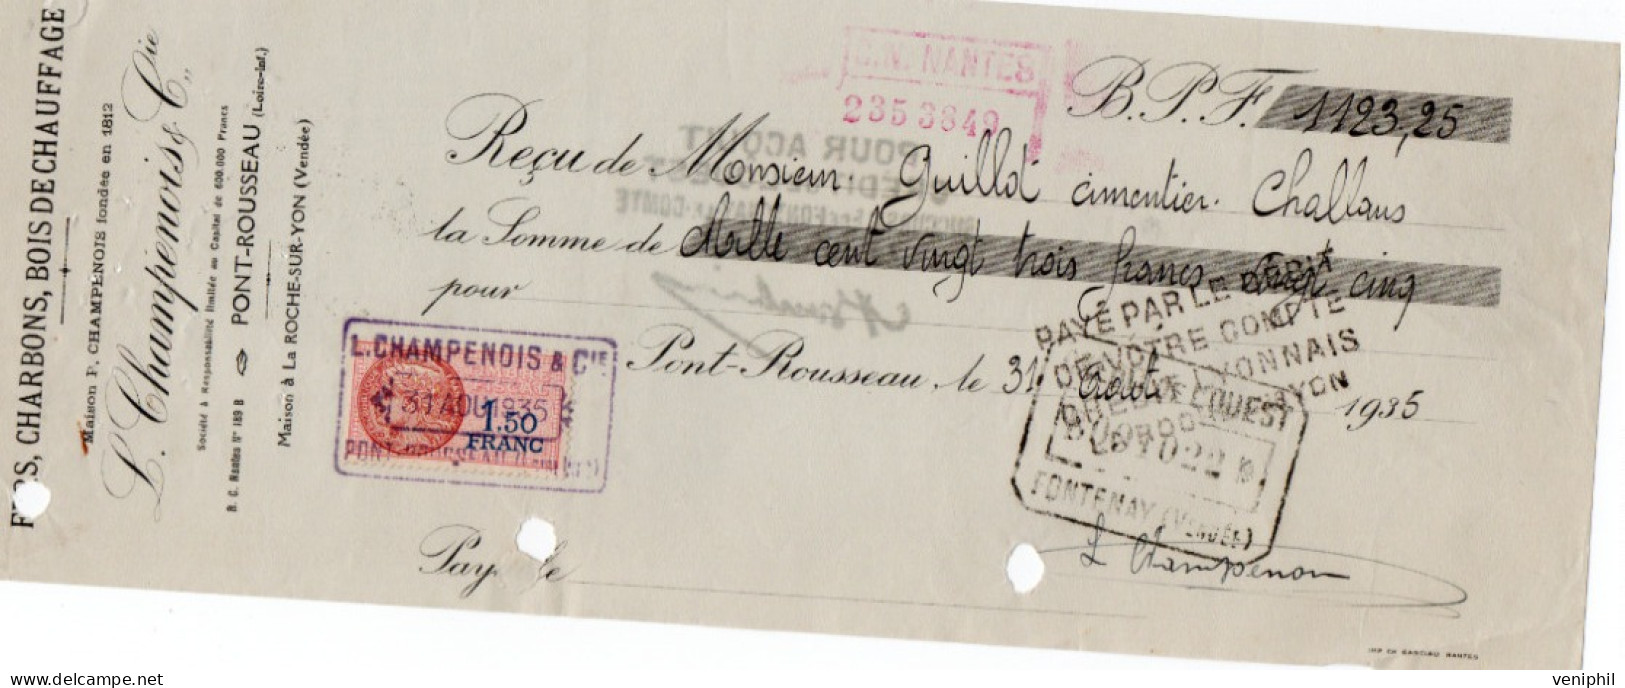 FERS, CHARBONS, BOIS DE CHAUFFAGE
Maison P. CHAMPENOIS fondée en 1812
L. Champenois & Cie
Société à Responsabilité limitée au Capital de 600.000 Francs
R. C. Nantes N° 189 B PONT-ROUSSEAU (Loire-inf.)
Maison à LA ROCHE-SUR-YON (Vendée)
C.N. NANTES
2353849
B.P.F. 1123,25
POUR ACQUIT
Reçu de Monsieur Guillot cimentier. Challans
la Somme de Mille cent vingt trois francs vingt cinq
pour
PAYÉ PAR LE DEBIT
DE VOTRE COMPTE
LYONNAIS
L. CHAMPENOIS & CIE
31 AOU 1935
1.50
FRANC
PONT-ROUSSEAU
Pont-Rousseau, le 31 Août 1935
FONTENAY (VENDÉE)
L Champenois
Payé le
IMP CH NANTES
veniphil